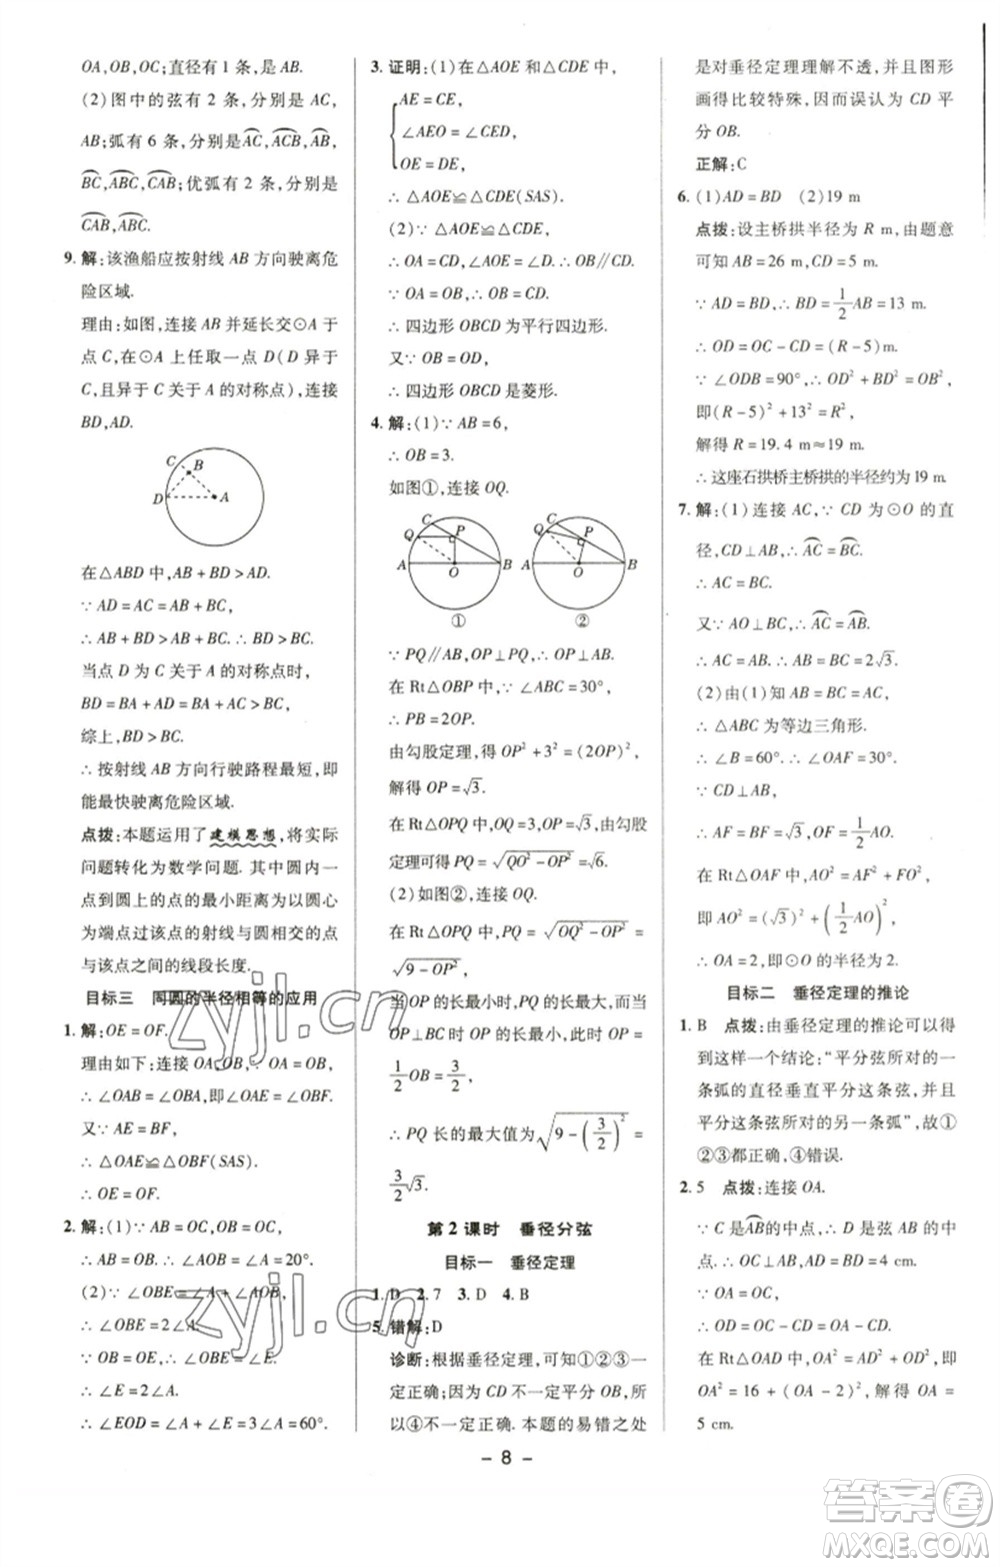 OA,OB,OC;直径有 1 条,是 AB.
(2)图中的弦有 2 条,分别是 AC,
AB;弧有 6 条,分别是 A͡C,A͡CB,A͡B,
B͡C,A͡BC,C͡AB;优弧有 2 条,分别是
C͡AB,A͡BC.
9. 解:该渔船应按射线 AB 方向驶离危
险区域.
理由:如图,连接 AB 并延长交⊙A 于
点 C,在⊙A 上任取一点 D(D 异于
C,且异于 C 关于 A 的对称点),连接
BD,AD.
C
B
D
A
在△ABD 中,AB + BD > AD.
∵ AD = AC = AB + BC,
∴ AB + BD > AB + BC. ∴ BD > BC.
当点 D 为 C 关于 A 的对称点时,
BD = BA + AD = BA + AC > BC,
综上,BD > BC.
∴ 按射线 AB 方向行驶路程最短,即
能最快驶离危险区域.
点拨:本题运用了建模思想,将实际
问题转化为数学问题. 其中圆内一
点到圆上的点的最小距离为以圆心
为端点过该点的射线与圆相交的点
与该点之间的线段长度.
目标三 同圆的半径相等的应用
1. 解:OE = OF.
理由如下:连接 OA,OB,∵ OA = OB,
∴ ∠OAB = ∠OBA,即∠OAE = ∠OBF.
又∵ AE = BF,
∴ △OAE≌△OBF(SAS).
∴ OE = OF.
2. 解:(1)∵ AB = OC,OB = OC,
∴ AB = OB. ∴ ∠AOB = ∠A = 20°.
(2)∵ ∠OBE = ∠A + ∠AOB,
∴ ∠OBE = 2∠A.
∵ OB = OE,∴ ∠OBE = ∠E.
∴ ∠E = 2∠A.
∴ ∠EOD = ∠A + ∠E = 3∠A = 60°.
3. 证明:(1)在△AOE 和△CDE 中,
AE = CE,
∠AEO = ∠CED,
OE = DE,
∴ △AOE≌△CDE(SAS).
(2)∵ △AOE≌△CDE,
∴ OA = CD,∠AOE = ∠D. ∴ OB∥CD.
∵ OA = OB,∴ OB = CD.
∴ 四边形 OBCD 为平行四边形.
又∵ OB = OD,
∴ 四边形 OBCD 是菱形.
4. 解:(1)∵ AB = 6,
∴ OB = 3.
如图①,连接 OQ.
C
Q
P
A
O
B
①
C
Q
P
A
O
B
②
∵ PQ∥AB,OP⊥PQ,∴ OP⊥AB.
在 Rt△OBP 中,∵ ∠ABC = 30°,
∴ PB = 2OP.
由勾股定理,得 OP² + 3² = (2OP)²,
解得 OP = √3.
在 Rt△OPQ 中,QO = 3,OP = √3,由勾股
定理可得 PQ = √(QO² − OP²) = √6.
(2)如图②,连接 OQ.
在 Rt△OPQ 中,PQ = √(OQ² − OP²) =
√(9 − OP²),
当 OP 的长最小时,PQ 的长最大,而当
OP⊥BC 时 OP 的长最小,此时 OP =
1/2 OB = 3/2,
∴ PQ 长的最大值为 √(9 − (3/2)²) =
3√3/2.
第 2 课时 垂径分弦
目标一 垂径定理
1. D 2. 7 3. D 4. B
5. 错解:D
诊断:根据垂径定理,可知①②③一
定正确;因为 CD 不一定平分 OB,所
以④不一定正确. 本题的易错之处
是对垂径定理理解不透,并且图形
画得比较特殊,因而误认为 CD 平
分 OB.
正解:C
6. (1)AD = BD (2)19 m
点拨:设主桥拱半径为 R m,由题意
可知 AB = 26 m,CD = 5 m.
∵ AD = BD,∴ BD = 1/2 AB = 13 m.
∴ OD = OC − CD = (R − 5) m.
∵ ∠ODB = 90°,∴ OD² + BD² = OB²,
即(R − 5)² + 13² = R²,
解得 R = 19.4 m≈19 m.
∴ 这座石拱桥主桥拱的半径约为 19 m.
7. 解:(1)连接 AC,∵ CD 为⊙O 的直
径,CD⊥AB,∴ A͡C = B͡C.
∴ AC = BC.
又∵ AO⊥BC,∴ A͡C = A͡B.
∴ AC = AB. ∴ BC = AB = 2√3.
(2)由(1)知 AB = BC = AC,
∴ △ABC 为等边三角形.
∴ ∠B = 60°.
∵ CD⊥AB,
∴ AF = BF = √3,OF = 1/2 AO.
在 Rt△OAF 中,AO² = AF² + FO²,
即 AO² = (√3)² + (1/2 AO)²,
∴ OA = 2,即⊙O 的半径为 2.
目标二 垂径定理的推论
1. B 点拨:由垂径定理的推论可以得
到这样一个结论:“平分弦所对的一
条弧的直径垂直平分这条弦,并且
平分这条弦所对的另一条弧”,故①
②③都正确,④错误.
2. 5 点拨:连接 OA.
∵ C 是A͡B的中点,D 是弦 AB 的中
点,∴ OC⊥AB,AD = BD = 4 cm.
∵ OA = OC,
∴ OD = OC − CD = OA − CD.
在 Rt△OAD 中,OA² = AD² + OD²,即
OA² = 16 + (OA − 2)²,解得 OA =
5 cm.
– 8 –
zyjl.cn
zyjl.cn
答案圈
MXQE.COM